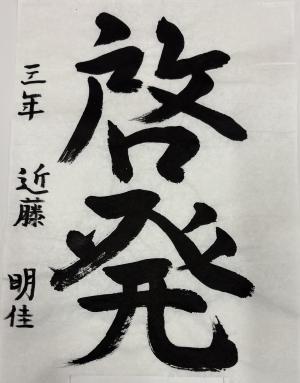 啓発
三年 近藤 明佳